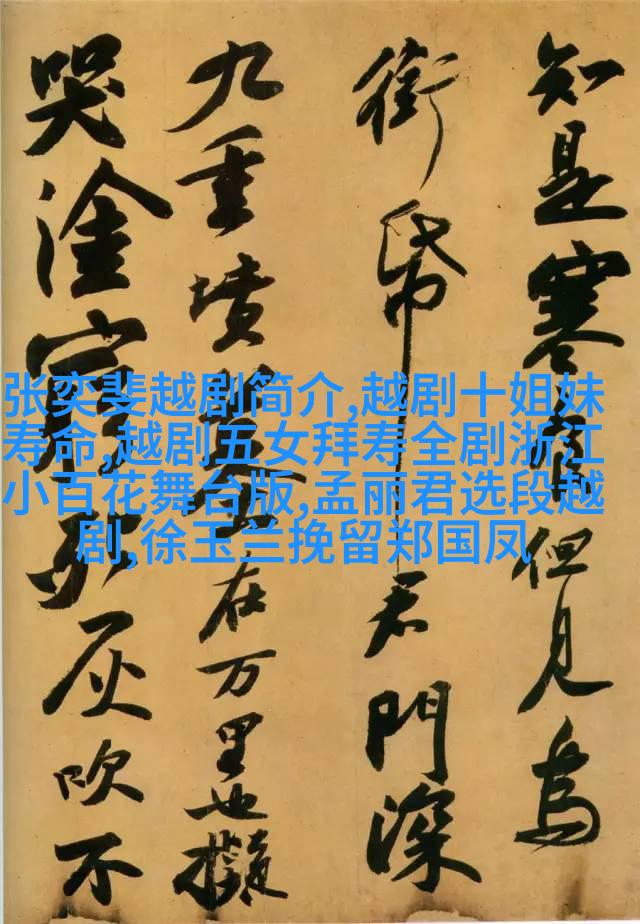 知是寒食但見烏
銜帋君門深
九重墳墓在万里也擬
哭塗窮死灰吹不
张奕斐越剧简介,越剧十姐妹
寿命,越剧五女拜寿全剧浙江
小百花舞台版,孟丽君选段越
剧,徐玉兰挽留郑国凤